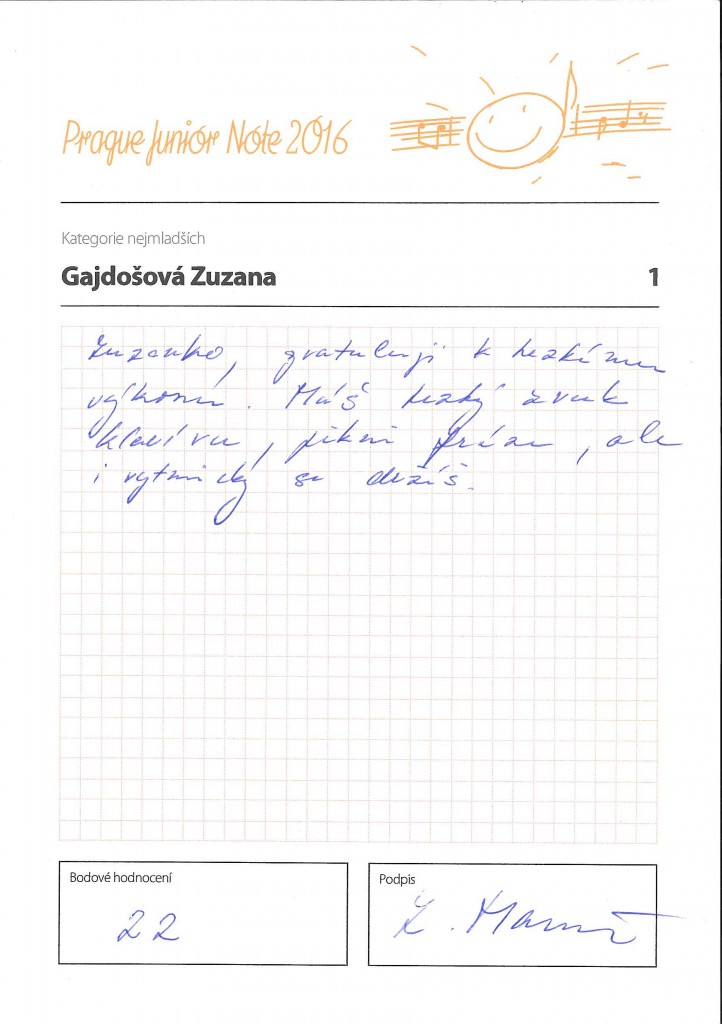 Prague Junior Note 2016
Kategorie nejmladších
Gajdošová Zuzana 1
Zuzanko, gratuluji k hezkému
výkonu. Máš hezký zvuk
klavíru, pěkné fráze, ale
i rytmicky se držíš.
Bodové hodnocení
22
Podpis